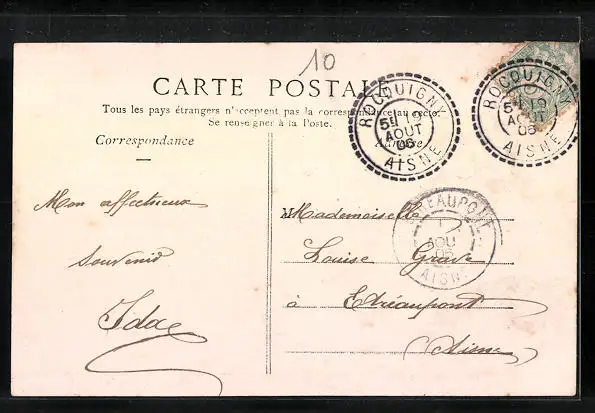 10
CARTE POSTALE
Tous les pays étrangers n'acceptent pas la correspondance au recto.
Se renseigner à la Poste.
Correspondance
ROCQUIGNY
5E 19
AOUT
06
AISNE
ROCQUIGNY
5E 19
AOUT
06
AISNE
Mon affectueux
Souvenir
Ida
ETRÉAUPONT
AOU
06
AISNE
Mademoiselle
Louise Grave
à Etréaupont
Aisne